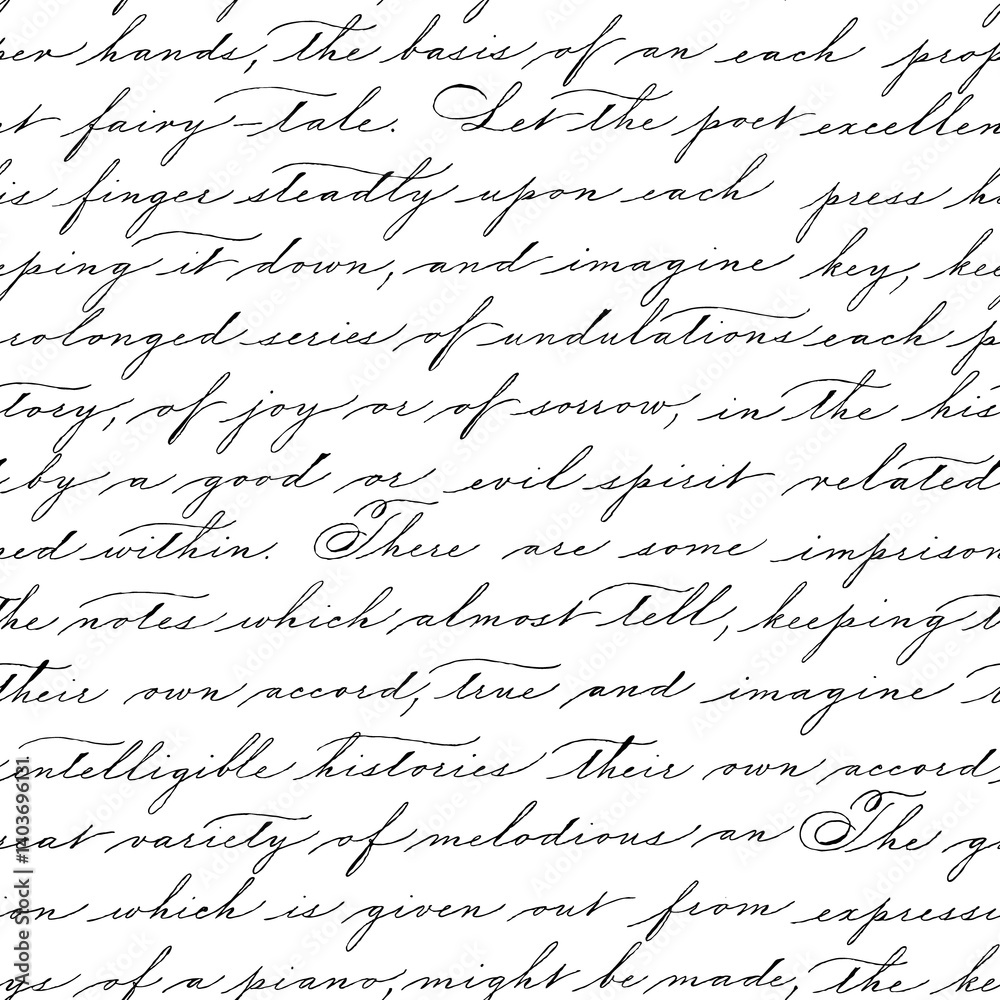 per hands, the basis of an each prop
et fairy-tale. Let the poet excellen
is finger steadly upon each press hi
eping it down, and imagine key, kee
rolonged series of undulations each p
tory, of joy or of sorrow, in the his
d by a good or evil spirit related
ned within. There are some imprison
the notes which almost tell, keeping t
their own accord, true and imagine t
intelligible histories their own accord,
reat variety of melodious an The g
ion which is given out from expressi
ys of a piano, might be made, the ke
Adobe Stock | #1403696131